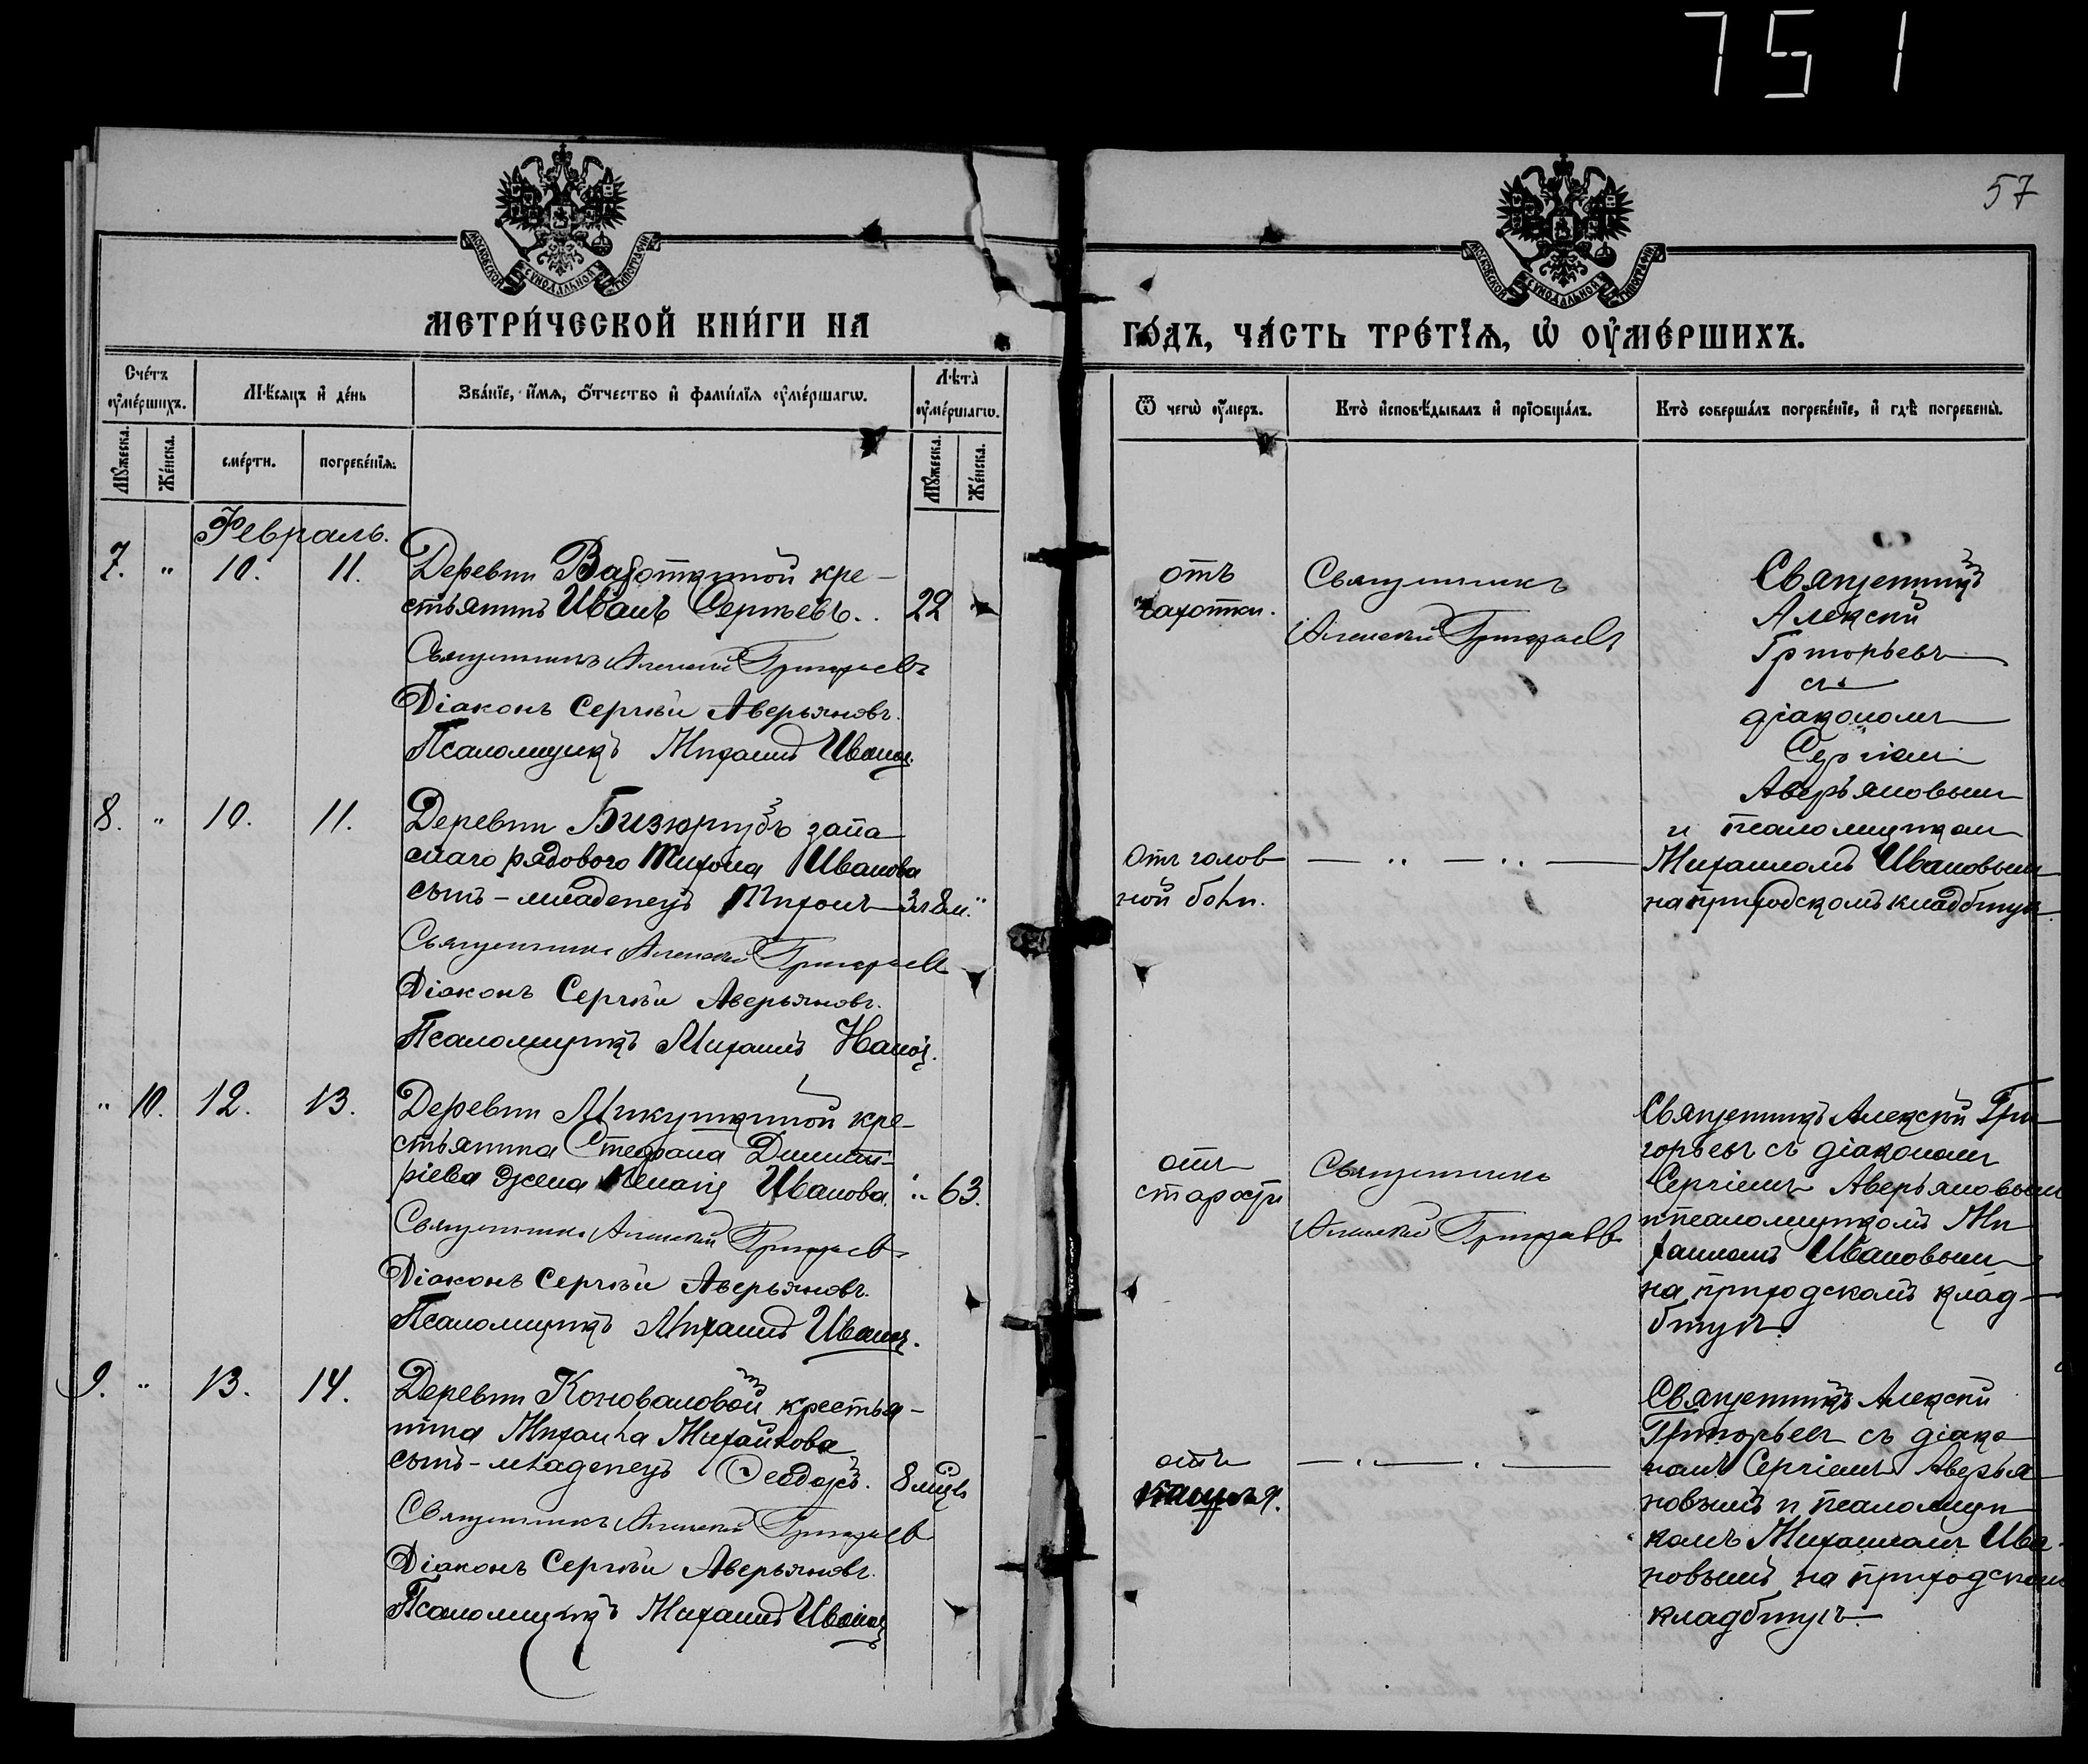 751
57
МОСКОВСКОЙ СѴНОДАЛЬНОЙ ТИПОГРАФІИ
МОСКОВСКОЙ СѴНОДАЛЬНОЙ ТИПОГРАФІИ
МЕТРИ́ЧЕСКОЙ КНИ́ГИ НА
ГО́ДЪ, ЧА́СТЬ ТРЕ́ТІѦ, Ѡ҆ ОУ҆МЕ́РШИХЪ.
Сче́тъ оу҆ме́ршихъ.
Мѣ́сяцъ и҆ де́нь
Зва́нїе, и҆́мя, ѻ҆́тчество и҆ фами́лїя оу҆ме́ршагѡ.
Лѣта̀ оу҆ме́ршагѡ.
Ѿ чегѡ̀ оу҆́меръ.
Кто̀ и҆сповѣ́дывалъ и҆ прїѻбща́лъ.
Кто̀ соверша́лъ погребе́нїе, и҆ гдѣ̀ погребены̀.
Мꙋ́жеска.
Же́нска.
сме́рти.
погребе́нїя.
Мꙋ́жеска.
Же́нска.
Февраль.
7. " 10. 11. Деревни кре-
стьянинъ Иванъ Сергѣевъ. 22
Священникъ Алексій Григорьевъ
Діаконъ Сергѣй Аверьяновъ.
Псаломщикъ Михаилъ Иванов.
отъ
чахотки.
Священникъ
Алексій Григорьевъ
Священникъ
Алексій
Григорьевъ
съ
діакономъ
Сергіемъ
Аверьяновымъ
и псаломщикомъ
Михаиломъ Ивановымъ
на приходскомъ кладбищѣ
8. " 10. 11. Деревни запа
снаго рядового Тихона Иванова
сынъ - младенецъ Тихонъ 3г 8м. "
Священникъ Алексій Григорьевъ
Діаконъ Сергѣй Аверьяновъ.
Псаломщикъ Михаилъ Иванов.
Отъ голов
ной боли.
" 10. 12. 13. Деревни Микушкиной кре-
стьянина Стефана Димит-
ріева жена Иванова. " 63.
Священникъ Алексій Григорьевъ
Діаконъ Сергѣй Аверьяновъ.
Псаломщикъ Михаилъ Иванов.
отъ
старости
Священникъ
Алексій Григорьевъ
Священникъ Алексій Гри
горьевъ съ діакономъ
Сергіемъ Аверьяновымъ
и псаломщикомъ Ми
хаиломъ Ивановымъ
на приходскомъ клад-
бищѣ.
9. " 13. 14. Деревни Коноваловой крестья-
нина Михаила Михайлова
сынъ - младенецъ Ѳеодоръ. 8 мцъ
Священникъ Алексій Григорьевъ
Діаконъ Сергѣй Аверьяновъ.
Псаломщикъ Михаилъ Иванов
отъ
кашля.
Священникъ Алексій
Григорьевъ съ діако
номъ Сергіемъ Аверья
новымъ и псаломщи
комъ Михаиломъ Ива-
новымъ на приходскомъ
кладбищѣ.